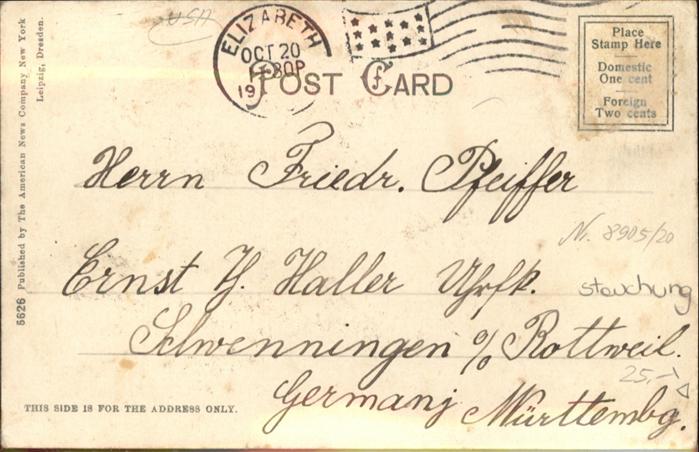 USA
ELIZABETH
OCT 20
30P
19
POST CARD
Place
Stamp Here
Domestic
One cent
Foreign
Two cents
5626 Published by The American News Company New York
Leipzig, Dresden.
Herrn Friedr. Pfeiffer
Nr. 8905/20
Ernst H. Haller Uhrfk.
stauchung
Schwenningen o/ Rottweil.
25,-
Germany Württembg.
THIS SIDE IS FOR THE ADDRESS ONLY.